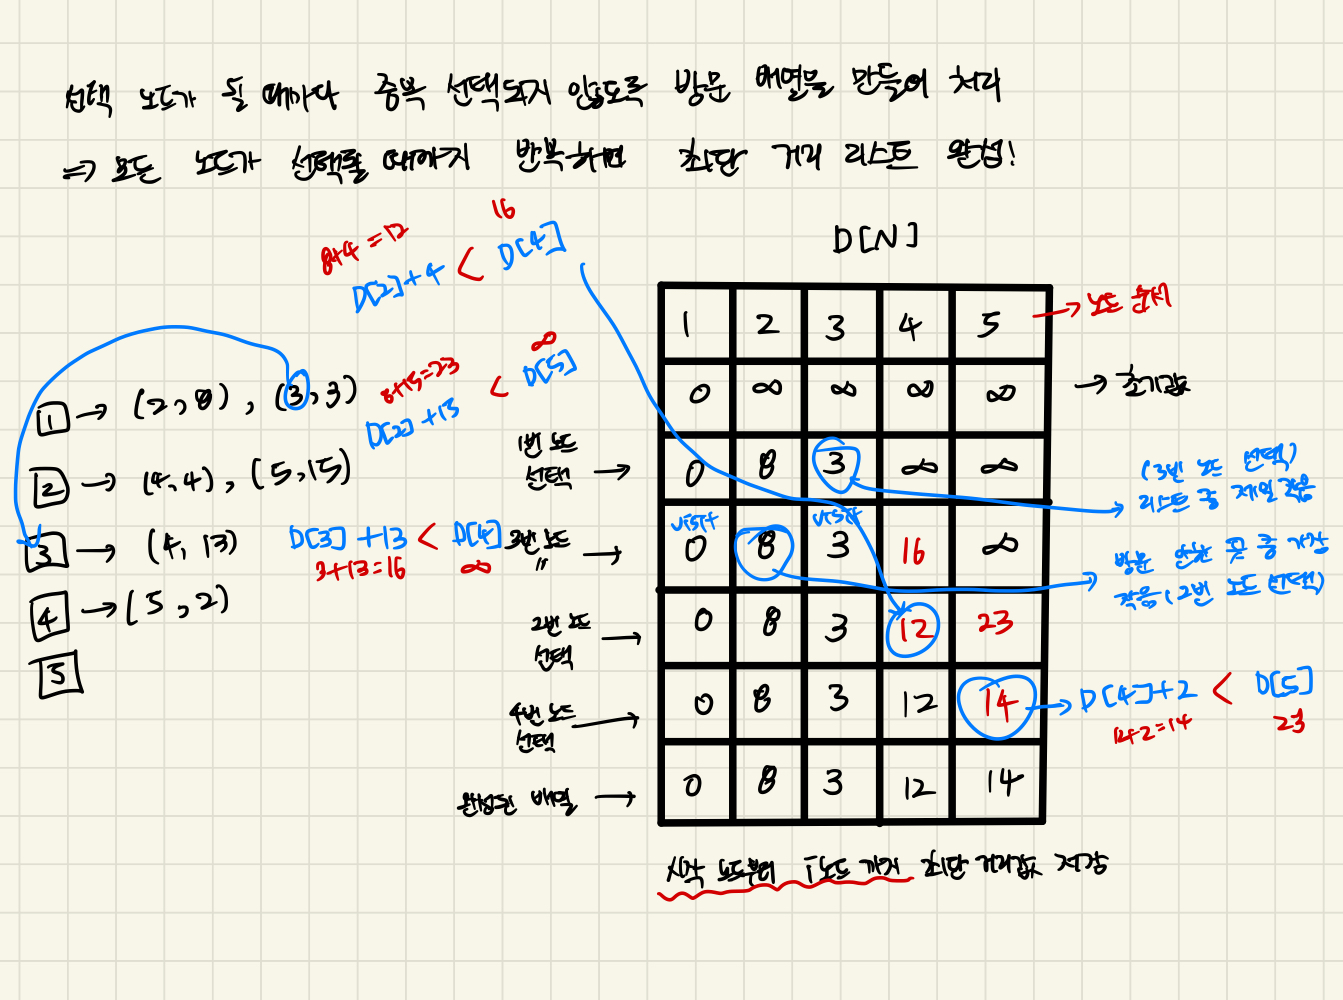 선택 노드가 될 때마다 중복 선택되지 않도록 방문 배열을 만들어 처리
=> 모든 노드가 선택될 때까지 반복하면 최단 거리 리스트 완성!
8+4=12
16
D[2]+4 < D[4]
8+15=23
∞
D[2]+13 < D[5]
1 → (2,8), (3,3)
2 → (4,4), (5,15)
3 → (4,13)
D[3]+13 < D[4]
3+13=16
∞
4 → (5,2)
5
D[N]
1 2 3 4 5 → 노드 순서
0 ∞ ∞ ∞ ∞ → 초기값
1번 노드 선택 → 0 8 3 ∞ ∞
(3번 노드 선택)
리스트 중 제일 작음
visit visit
3번 노드 〃 → 0 8 3 16 ∞
방문 안한 곳 중 가장
작음(2번 노드 선택)
2번 노드 선택 → 0 8 3 12 23
4번 노드 선택 → 0 8 3 12 14 → D[4]+2 < D[5]
12+2=14
23
완성된 배열 → 0 8 3 12 14
시작 노드부터 i노드 까지 최단 거리값 저장